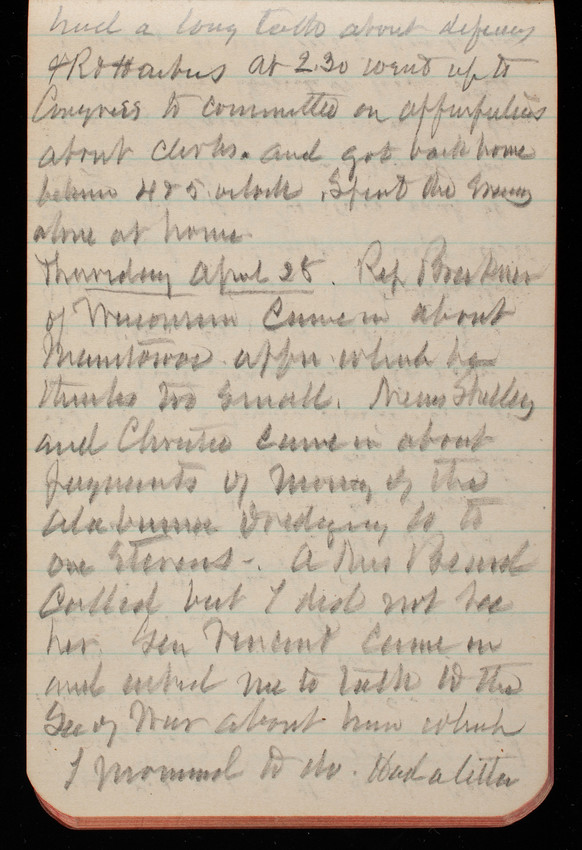 had a long talk about defenses
& R & Harbors at 2.30 went up to
Congress to committee on appropriations
about clerks. and got back home
between 4 & 5 oclock. Spent the Evening
alone at home
Thursday April 25. Rep
of Wisconsin came in about
Manitowoc appn which he
thinks too small. Messrs Shelley
and came in about
payments of money of the
Alabama Dredging Co to
one Stevens -. A Mrs Beard
Called but I did not see
her. Gen Vincent came in
and asked me to talk to the
Sec of War about him which
I promised to do. Had a letter